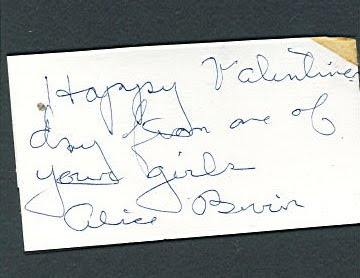 Happy Valentines
day from one of
your girls
Alice